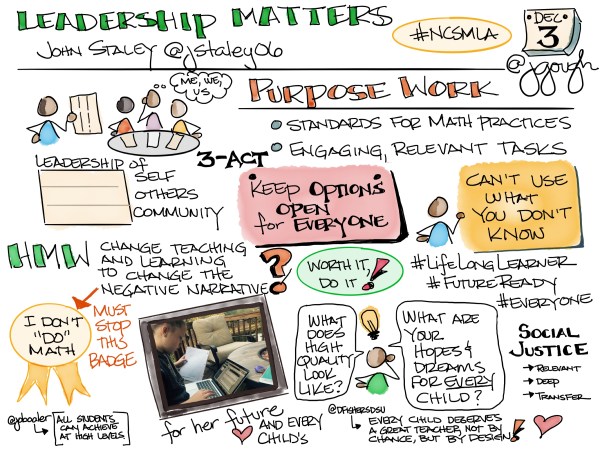 LEADERSHIP MATTERS
JOHN STALEY @jstaley06
#NCSMLA
DEC
3
@jgough
ME, WE,
US
PURPOSE WORK
STANDARDS FOR MATH PRACTICES
3-ACT
ENGAGING, RELEVANT TASKS
LEADERSHIP of
SELF
OTHERS
COMMUNITY
KEEP OPTIONS
OPEN
for EVERYONE
CAN'T USE
WHAT
YOU DON'T
KNOW
HMW
CHANGE TEACHING
AND LEARNING
TO CHANGE THE
NEGATIVE NARRATIVE
?
WORTH IT,
DO IT!
#LIFELONGLEARNER
#FUTUREREADY
#EVERYONE
I DON'T
"DO"
MATH
MUST
STOP this
BADGE
WHAT
DOES
HIGH
QUALITY
LOOK
LIKE?
WHAT ARE
YOUR
HOPES &
DREAMS
FOR EVERY
CHILD?
SOCIAL
JUSTICE
→ RELEVANT
→ DEEP
→ TRANSFER
@joboaler
ALL STUDENTS
CAN ACHIEVE
AT HIGH LEVELS
for her future
AND EVERY
CHILD'S
@DFISHERSDSU
EVERY CHILD DESERVES
A GREAT TEACHER, NOT BY
CHANCE, BUT BY DESIGN!